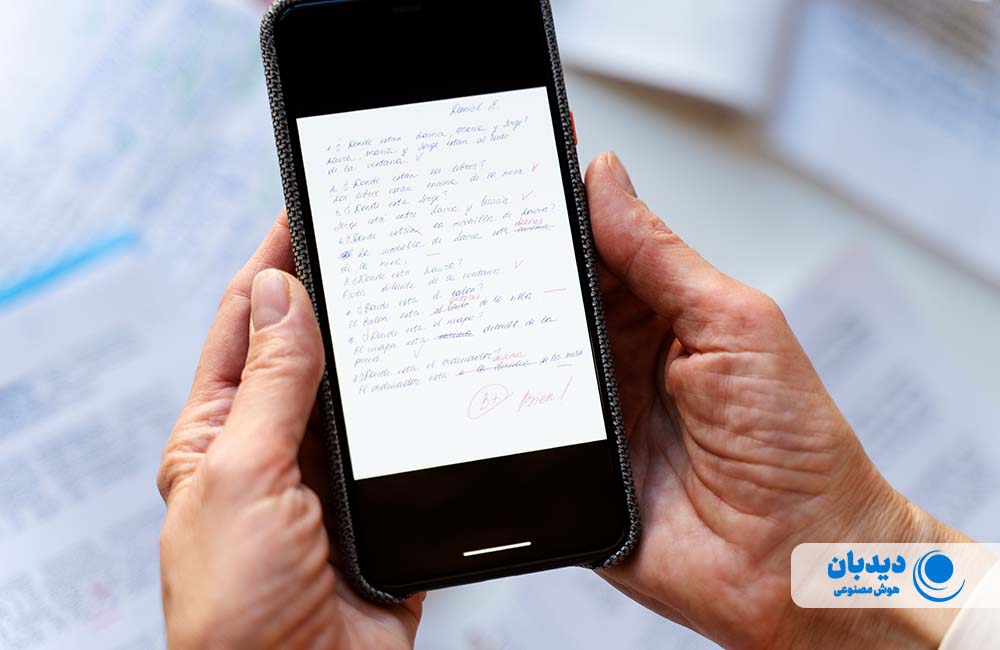 Daniel E.
1. ¿Donde estan Laura, Maria y Jorge?
Laura, Maria y Jorge estan al lado
de la ventana.
2. ¿Donde estan los libros?
Los libros estan encima de la mesa.
3. ¿Donde esta Jorge?
Jorge está entre Laura y Maria
¿Donde esta la mochilla de Laura?
detras
La mochilla de Laura esta
de la mesa.
¿Donde esta Laura?
Esta delante de la ventana.
¿Donde esta el balon?
El balon esta de la silla.
¿Donde esta el mapa?
El mapa esta de la
pared.
¿Donde esta el ordenador?
encima
El ordenador esta de la mesa
B+ Bien!
دیدبان
هوش مصنوعی